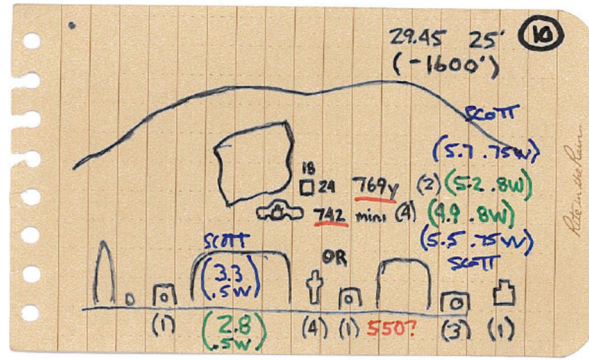 29.45 25' 10
(-1600')
SCOTT
(5.7 .75W)
18
24 769y (2) (5.2 .8W)
742 mini (4) (4.9 .8W)
SCOTT (5.5 .75W)
OR SCOTT
(3.3
.5W)
(1) (2.8 (4) (1) 550? (3) (1)
.5W)
Rite in the Rain